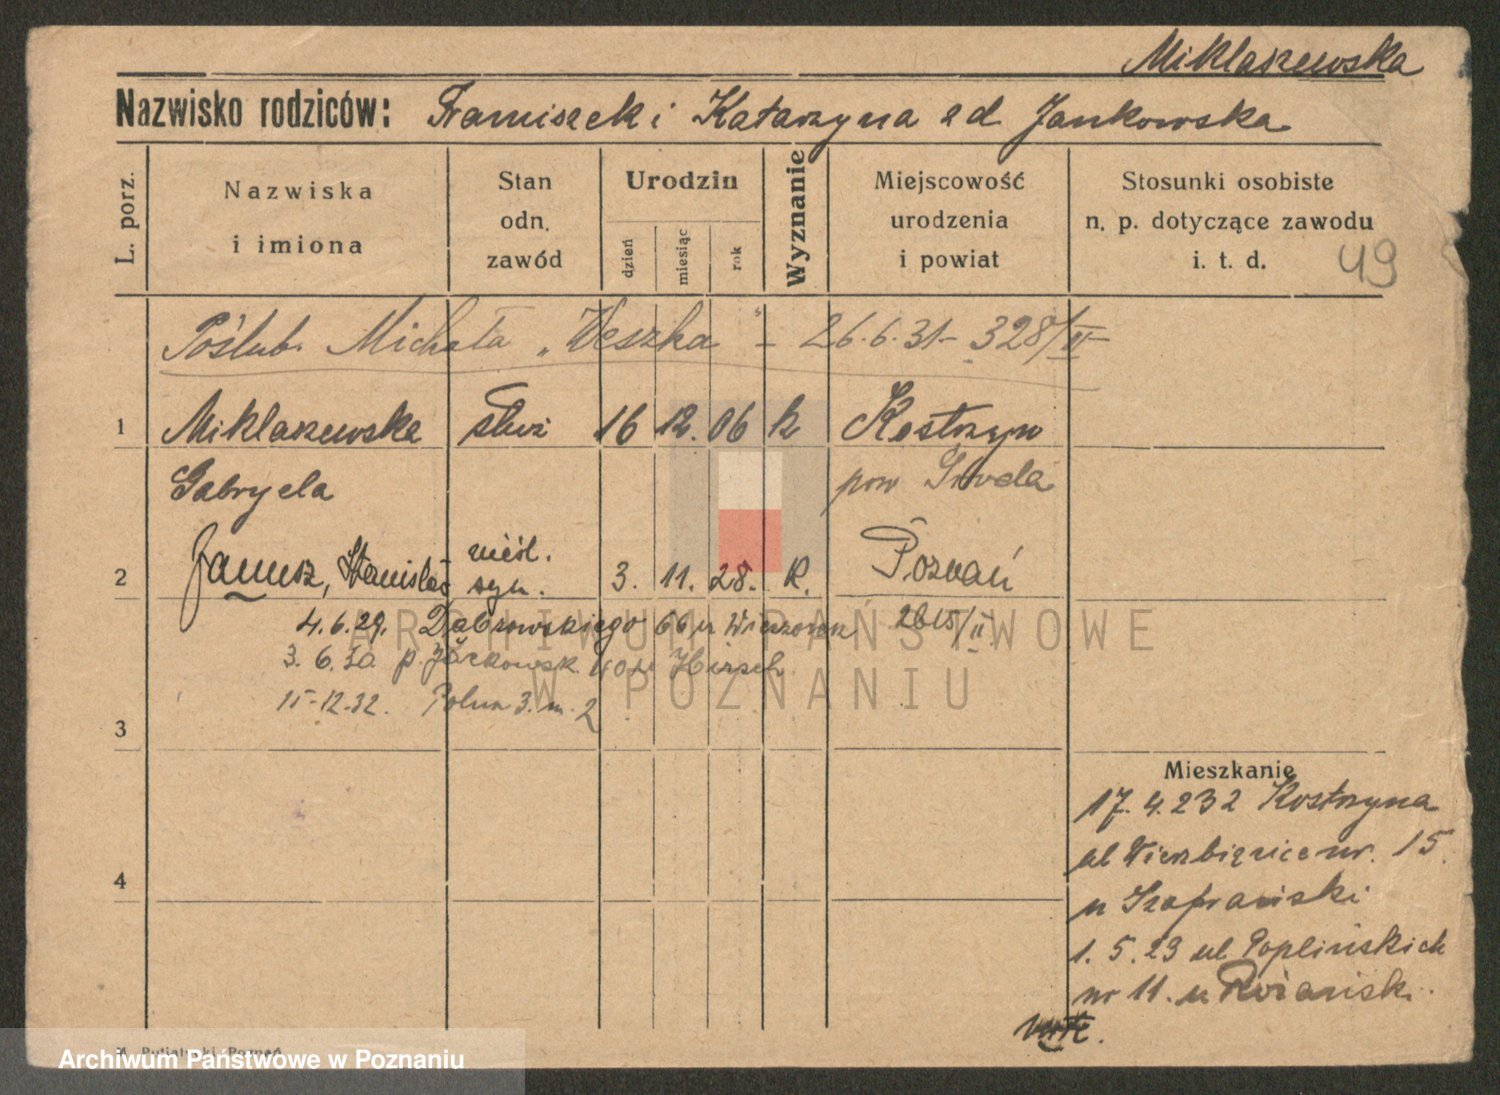 Miklaszewska
Nazwisko rodziców: Franciszek i Katarzyna z d. Jankowska
L. porz.
Nazwiska i imiona
Stan odn. zawód
Urodzin
dzień
miesiąc
rok
Wyznanie
Miejscowość urodzenia i powiat
Stosunki osobiste n. p. dotyczące zawodu i. t. d.
49
Poślub. Michała „Weszka" - 26.6.31 - 328/III
1 Miklaszewska służ 16 12. 06 k Kostrzyn
Gabryela pow Środa
2 Janusz, Stanisław nieśl. syn. 3. 11. 28. k. Poznań
4.6.29. Dąbrowskiego 66 u Wieczorek 2615/II
3.6.30. p. Hirsch
15-12.32. Polna 3. m. 2
3
Mieszkanie
17.4.232 Kostrzyna
ul Wierzbięcice nr. 15
u Szafrański
4
1.5.23 ul Poplińskich
nr 11. u Różański.
verte.
ARCHIWUM PAŃSTWOWE
W POZNANIU
Putiatycki Poznań
Archiwum Państwowe w Poznaniu